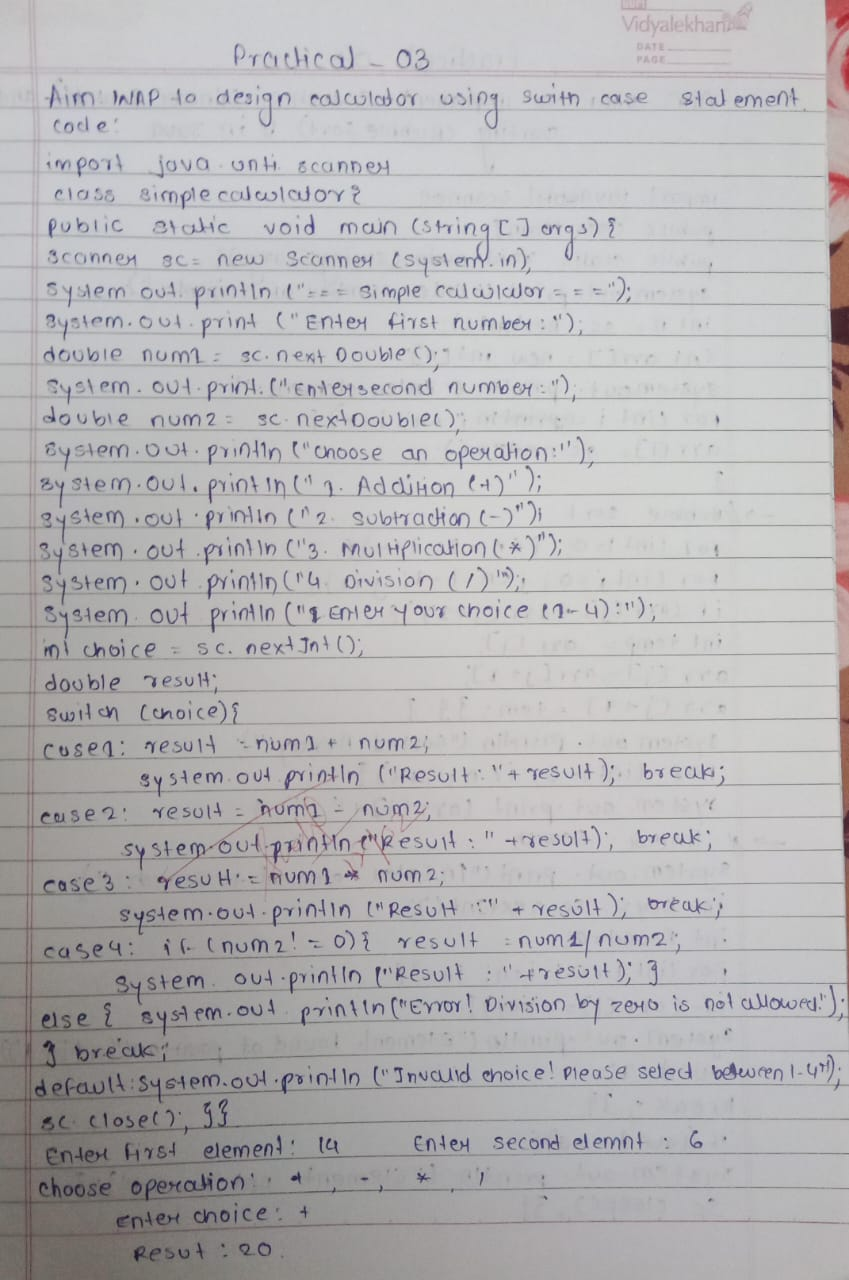 Vidyalekhan
DATE
PAGE
Practical - 03
Aim: WAP to design calculator using swith case statement.
code:
import java. unti. scanner
class simple calculator{
public static void main (string [] args) {
scanner sc = new Scanner (system.in);
system out. println ("=== simple calculator = = =");
system. out. print ("Enter first number:");
double num1 = sc. next Double ();
system. out. print. ("Enter second number:");
double num2 = sc. nextDouble();
system. out. println ("choose an operation:");
system. out. println (" 1. Addition (+)");
system. out. println ("2. subtraction (-)");
system. out. println ("3. Multiplication (*)");
system. out. println ("4. Division (/)");
system. out println ("Enter your choice (1-4):");
int choice = sc. nextInt();
double result;
switch (choice){
case1: result = num1 + num2;
system. out println ("Result: "+ result); break;
case2: result = num1 - num2;
system. out. println ("Result : " + result); break;
case3 : result = num1 * num2;
system. out. println ("Result :" + result); break;
case4: if (num2! = 0){ result = num1/num2;
system. out. println ("Result : "+result); }
else { system. out. println ("Error! Division by zero is not allowed!");
} break;
default: system. out. println ("Invalid choice! please select between 1-4");
sc. close(); }}
Enter first element: 14 Enter second elemnt : 6
choose operation: + , -, * , /
Enter choice: +
Resut : 20.